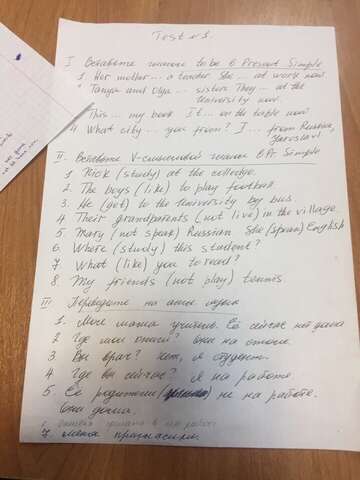 Test №1.
I Вставьте глагол to be в Present Simple
1. Her mother ... a teacher. She ... at work now.
Tanya and Olya ... sisters. They ... at the
University now.
This ... my book It ... on the table now
4. What city ... you from? I ... from Russia,
Yaroslavl
II Вставьте V-смысловой глагол в Pr. Simple
1. Nick (study) at the colledge.
2. The boys (like) to play football.
3. He (get) to the University by bus
4. Their grandparents (not live) in the village
5. Mary (not speak) Russian She (speak) English
6. Where (study) this student?
7. What (like) you to read?
8. My friends (not play) tennis
III Переведите на англ. язык
1. Моя мама учитель. Её сейчас нет дома
2 Где мои очки? они на столе.
3 Вы врач? Нет, я студент.
4 Где вы сейчас? Я на работе
5. Её родители не на работе.
Они дома.
7. меня пригласили.